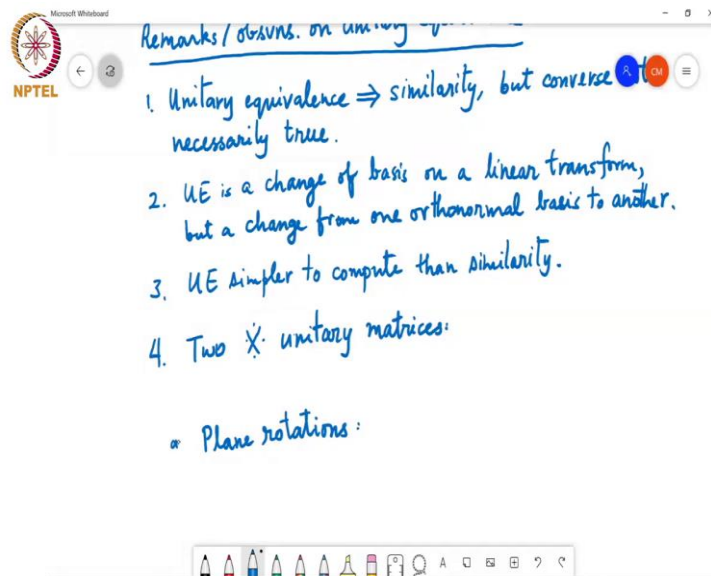 Microsoft Whiteboard
Remarks / obsvns. on unitary
NPTEL
A CM
1. Unitary equivalence ⇒ similarity, but converse
necessarily true.
2. UE is a change of basis on a linear transform,
but a change from one orthonormal basis to another.
3. UE simpler to compute than similarity.
4. Two unitary matrices:
Plane rotations: